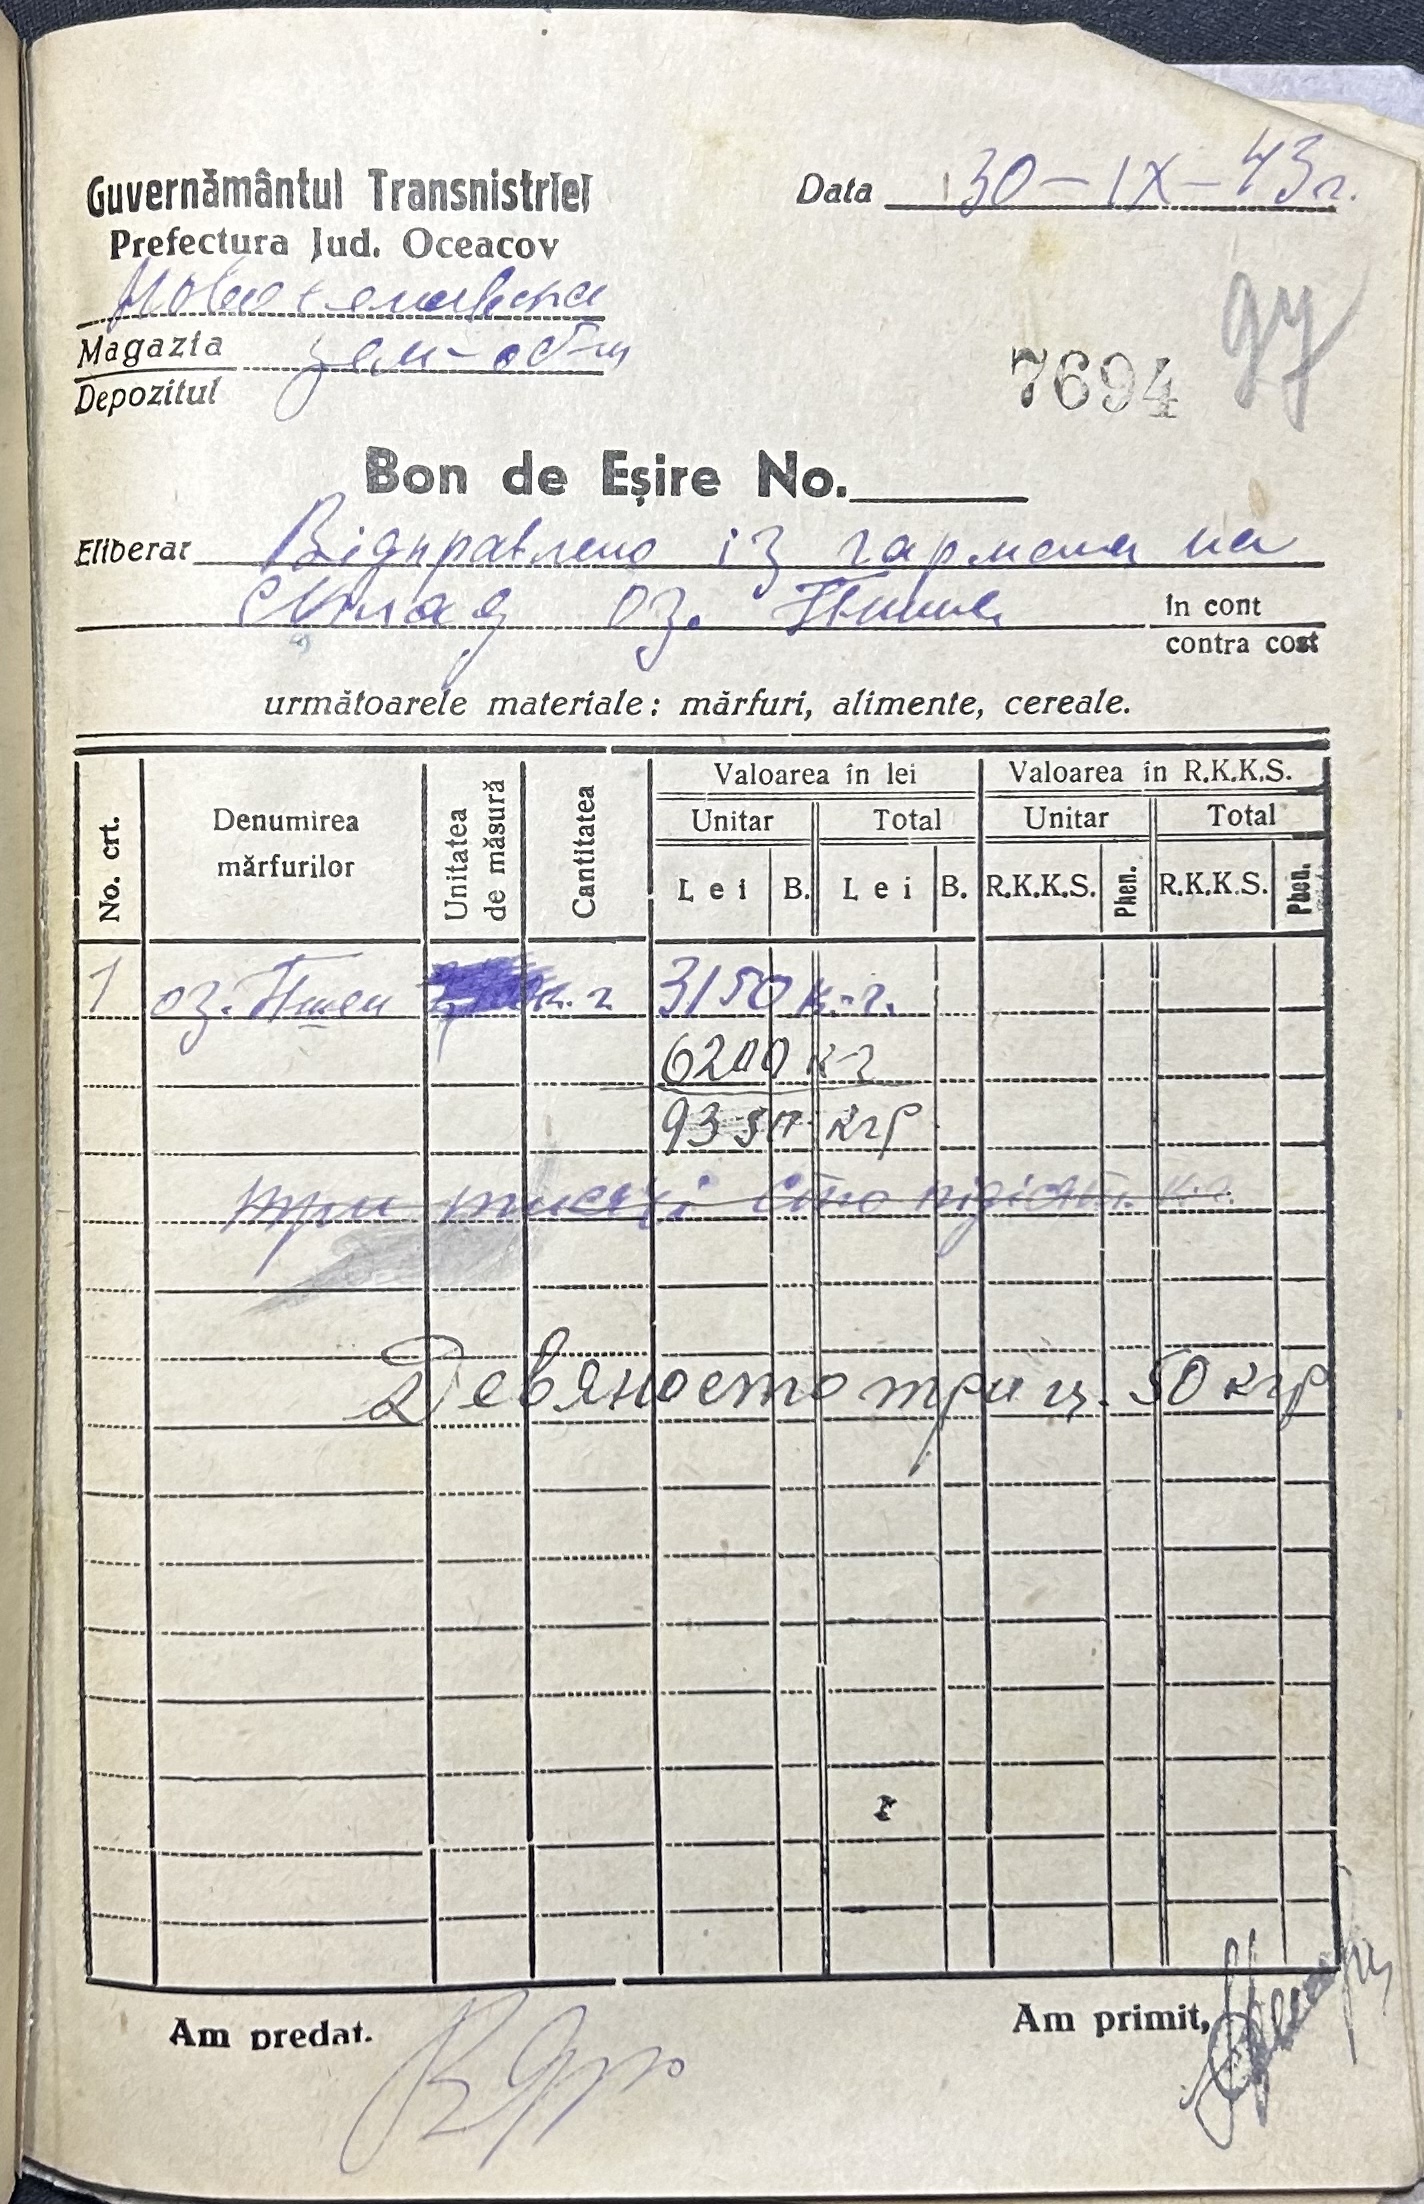 Guvernământul Transnistriei
Data 30-IX-43 г.
Prefectura Jud. Oceacov
Magazia
Depozitul
7694
97
Bon de Eşire No.
Eliberar Відправлено із гармана на
склад оз. Пшен in cont
contra cost
următoarele materiale: mărfuri, alimente, cereale.
No. crt. Denumirea mărfurilor Unitatea de măsură Cantitatea Valoarea în lei Valoarea în R.K.K.S.
Unitar Total Unitar Total
Lei B. Lei B. R.K.K.S. Phen. R.K.K.S. Phen.
1 оз. Пшен к.г 3150 к.-г.
6200 кг
9350 кгр
три тисячі сто підісят. к.г.
Девяносто три ц. 50 кгр
Am predat.
Am primit,